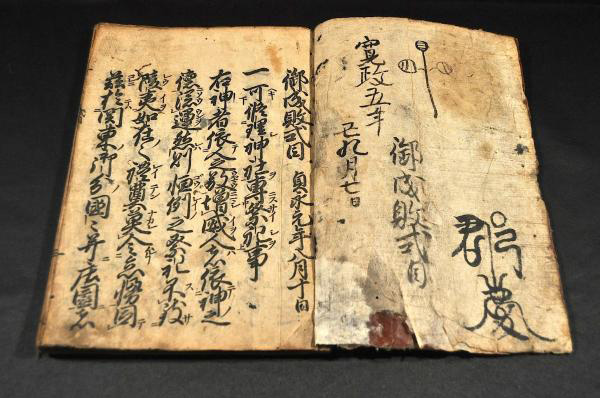 寛政五年
九月七日
御成敗式目
御成敗式目 貞永元年八月十日
一 可修理神社専祭祀事
右神者依人之敬増威人者依神之
德添運然則恒例之祭祀不致
陵夷如在之禮奠莫令怠慢因
茲於関東御分國々并庄園者